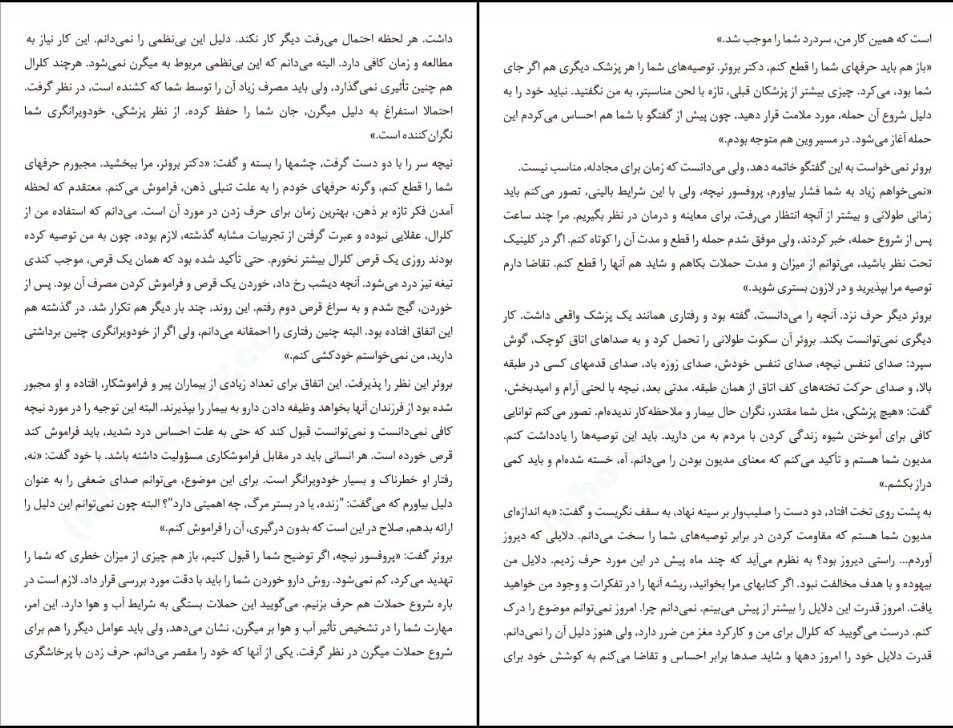 است که همین کار من، سردرد شما را موجب شد.»
«باز هم باید حرفهای شما را قطع کنم، دکتر بروئر. توصیه‌های شما را هر پزشک دیگری هم اگر جای
شما بود، می‌کرد. چیزی بیشتر از پزشکان قبلی، تازه با لحن مناسبتر، به من نگفتید. نباید خود را به
دلیل شروع آن حمله، مورد ملامت قرار دهید، چون پیش از گفتگو با شما هم احساس می‌کردم این
حمله آغاز می‌شود. در مسیر وین هم متوجه بودم.»
بروئر نمی‌خواست به این گفتگو خاتمه دهد، ولی می‌دانست که زمان برای مجادله، مناسب نیست.
«نمی‌خواهم زیاد به شما فشار بیاورم، پروفسور نیچه، ولی با این شرایط بالینی، تصور می‌کنم باید
زمانی طولانی و بیشتر از آنچه انتظار می‌رفت، برای معاینه و درمان در نظر بگیریم. مرا چند ساعت
پس از شروع حمله، خبر کردند، ولی موفق شدم حمله را قطع و مدت آن را کوتاه کنم. اگر در کلینیک
تحت نظر باشید، می‌توانم از میزان و مدت حملات بکاهم و شاید هم آنها را قطع کنم. تقاضا دارم
توصیه مرا بپذیرید و در لازون بستری شوید.»
بروئر دیگر حرف نزد. آنچه را می‌دانست، گفته بود و رفتاری همانند یک پزشک واقعی داشت. کار
دیگری نمی‌توانست بکند. بروئر آن سکوت طولانی را تحمل کرد و به صداهای اتاق کوچک، گوش
سپرد: صدای تنفس نیچه، صدای تنفس خودش، صدای زوزه باد، صدای قدمهای کسی در طبقه
بالا، و صدای حرکت تخته‌های کف اتاق از همان طبقه. مدتی بعد، نیچه با لحنی آرام و امیدبخش،
گفت: «هیچ پزشکی، مثل شما مقتدر، نگران حال بیمار و ملاحظه‌کار ندیده‌ام. تصور می‌کنم توانایی
کافی برای آموختن شیوه زندگی کردن با مردم به من دارید. باید این توصیه‌ها را یادداشت کنم.
مدیون شما هستم و تأکید می‌کنم که معنای مدیون بودن را می‌دانم. آه، خسته شده‌ام و باید کمی
دراز بکشم.»
به پشت روی تخت افتاد، دو دست را صلیب‌وار بر سینه نهاد، به سقف نگریست و گفت: «به اندازه‌ای
مدیون شما هستم که مقاومت کردن در برابر توصیه‌های شما را سخت می‌دانم. دلایلی که دیروز
آوردم... راستی دیروز بود؟ به نظرم می‌آید که چند ماه پیش در این مورد حرف زدیم. دلایل من
بیهوده و با هدف مخالفت نبود. اگر کتابهای مرا بخوانید، ریشه آنها را در تفکرات و وجود من خواهید
یافت. امروز قدرت این دلایل را بیشتر از پیش می‌بینم. نمی‌دانم چرا. امروز نمی‌توانم موضوع را درک
کنم. درست می‌گویید که کلرال برای من و کارکرد مغز من ضرر دارد، ولی هنوز دلیل آن را نمی‌دانم.
قدرت دلایل خود را امروز دهها و شاید صدها برابر احساس و تقاضا می‌کنم به کوشش خود برای
داشت. هر لحظه احتمال می‌رفت دیگر کار نکند. دلیل این بی‌نظمی را نمی‌دانم. این کار نیاز به
مطالعه و زمان کافی دارد. البته می‌دانم که این بی‌نظمی مربوط به میگرن نمی‌شود. هرچند کلرال
هم چنین تأثیری نمی‌گذارد، ولی باید مصرف زیاد آن را توسط شما که کشنده است، در نظر گرفت.
احتمالا استفراغ به دلیل میگرن، جان شما را حفظ کرده. از نظر پزشکی، خودویرانگری شما
نگران‌کننده است.»
نیچه سر را با دو دست گرفت، چشمها را بسته و گفت: «دکتر بروئر، مرا ببخشید. مجبورم حرفهای
شما را قطع کنم، وگرنه حرفهای خودم را به علت تنبلی ذهن، فراموش می‌کنم. معتقدم که لحظه
آمدن فکر تازه بر ذهن، بهترین زمان برای حرف زدن در مورد آن است. می‌دانم که استفاده من از
کلرال، عقلایی نبوده و عبرت گرفتن از تجربیات مشابه گذشته، لازم بوده، چون به من توصیه کرده
بودند روزی یک قرص کلرال بیشتر نخورم. حتی تأکید شده بود که همان یک قرص، موجب کندی
تیغه تیز درد می‌شود. آنچه دیشب رخ داد، خوردن یک قرص و فراموش کردن مصرف آن بود. پس از
خوردن، گیج شدم و به سراغ قرص دوم رفتم. این روند، چند بار دیگر هم تکرار شد. در گذشته هم
این اتفاق افتاده بود. البته چنین رفتاری را احمقانه می‌دانم، ولی اگر از خودویرانگری چنین برداشتی
دارید، من نمی‌خواستم خودکشی کنم.»
بروئر این نظر را پذیرفت. این اتفاق برای تعداد زیادی از بیماران پیر و فراموشکار، افتاده و او مجبور
شده بود از فرزندان آنها بخواهد وظیفه دادن دارو به بیمار را بپذیرند. البته این توجیه را در مورد نیچه
کافی نمی‌دانست و نمی‌توانست قبول کند که حتی به علت احساس درد شدید، باید فراموش کند
قرص خورده است. هر انسانی باید در مقابل فراموشکاری مسؤولیت داشته باشد. با خود گفت: «نه،
رفتار او خطرناک و بسیار خودویرانگر است. برای این موضوع، می‌توانم صدای ضعفی را به عنوان
دلیل بیاورم که می‌گفت: "زنده، یا در بستر مرگ، چه اهمیتی دارد"؟ البته چون نمی‌توانم این دلیل را
ارائه بدهم، صلاح در این است که بدون درگیری، آن را فراموش کنم.»
بروئر گفت: «پروفسور نیچه، اگر توضیح شما را قبول کنیم، باز هم چیزی از میزان خطری که شما را
تهدید می‌کرد، کم نمی‌شود. روش دارو خوردن شما را باید با دقت مورد بررسی قرار داد. لازم است در
باره شروع حملات هم حرف بزنیم. می‌گویید این حملات بستگی به شرایط آب و هوا دارد. این امر،
مهارت شما را در تشخیص تأثیر آب و هوا بر میگرن، نشان می‌دهد، ولی باید عوامل دیگر را هم برای
شروع حملات میگرن در نظر گرفت. یکی از آنها که خود را مقصر می‌دانم، حرف زدن با پرخاشگری